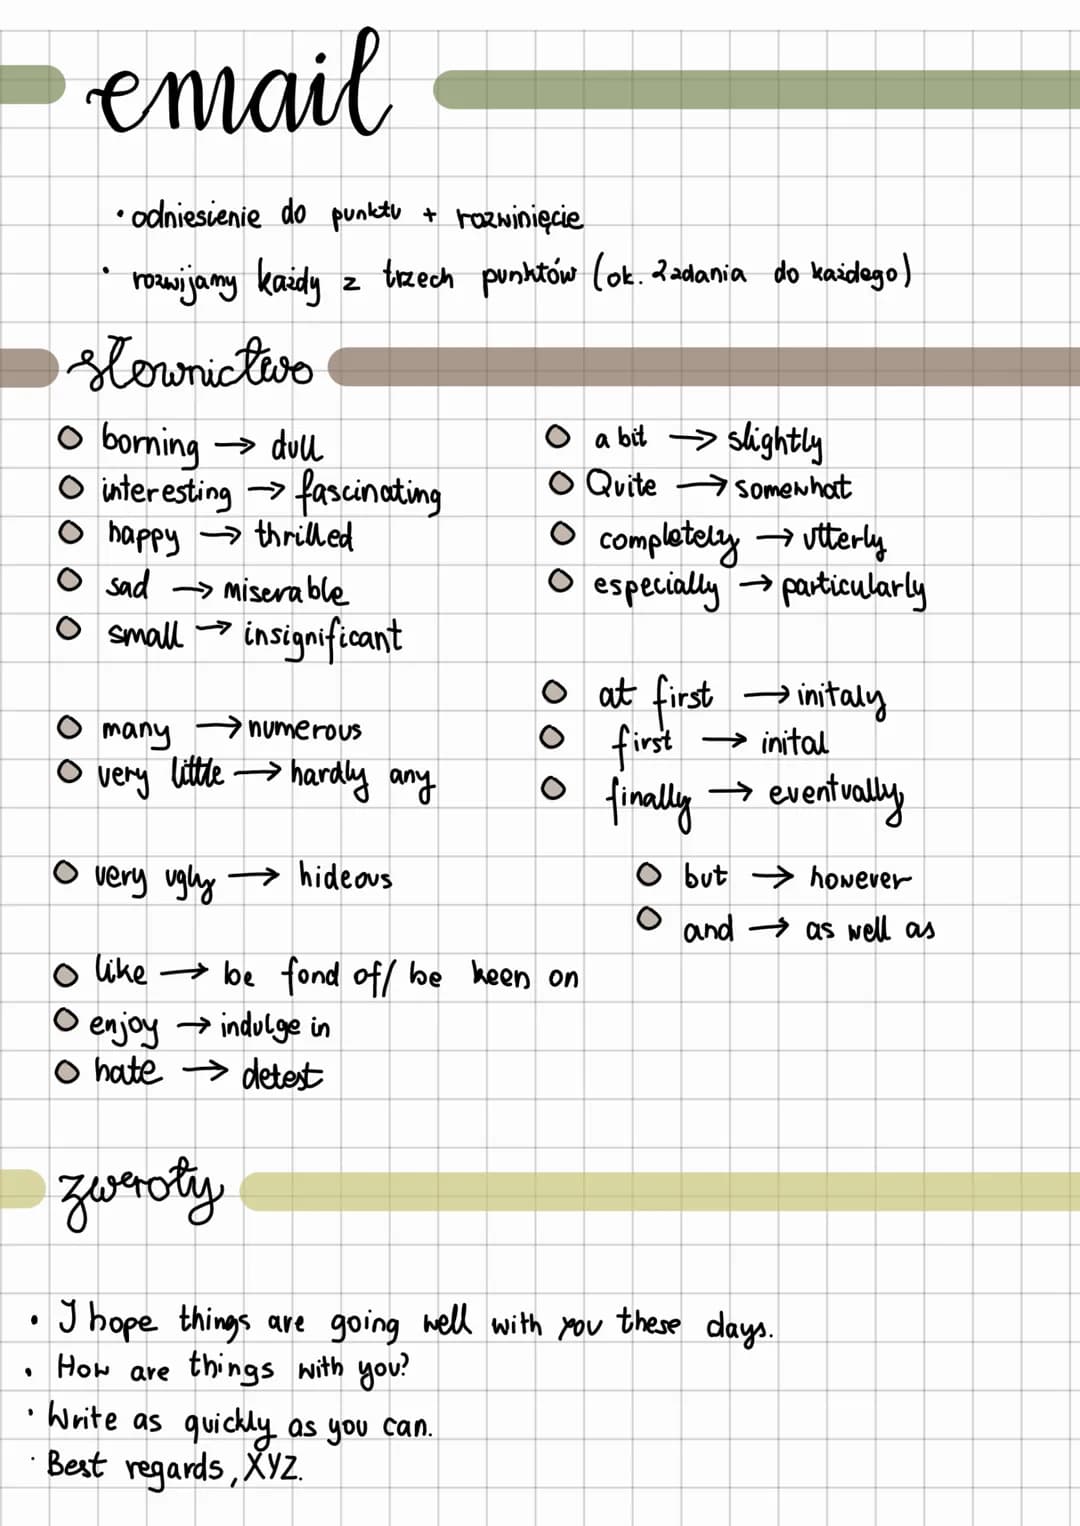 email
• odniesienie do punktu + rozwinięcie
• rozwijamy każdy z trzech punktów (ok. 2zdania do każdego)
słownictwo
borning → dull
interesting → fascinating
happy → thrilled
sad → miserable
small → insignificant
many → numerous
very little → hardly any
very ugly → hideous
like → be fond of/ be keen on
enjoy → indulge in
hate → detest
a bit → slightly
Quite → somewhat
completely → utterly
especially → particularly
at first → initaly
first → inital
finally → eventually
but → however
and → as well as
zwroty
• I hope things are going well with you these days.
• How are things with you?
• Write as quickly as you can.
• Best regards, XYZ.